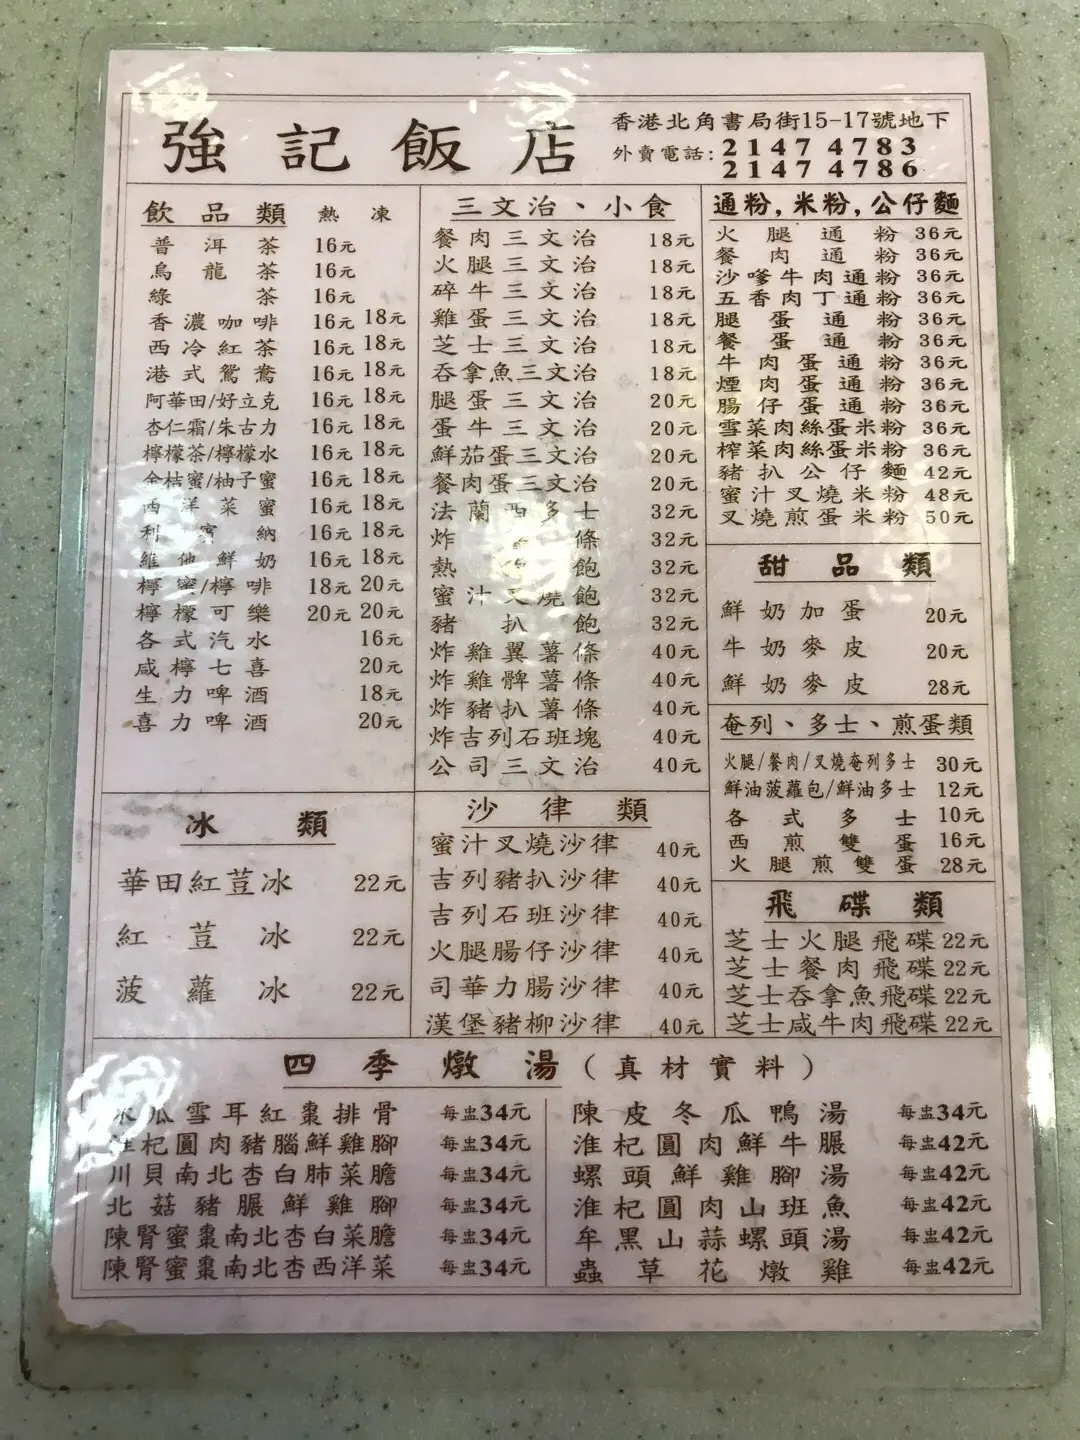 強記飯店
香港北角書局街15-17號地下
外賣電話: 2147 4783
2147 4786
飲品類 熱 凍
普洱茶 16元
烏龍茶 16元
綠茶 16元
香濃咖啡 16元 18元
西冷紅茶 16元 18元
港式鴛鴦 16元 18元
阿華田/好立克 16元 18元
杏仁霜/朱古力 16元 18元
檸檬茶/檸檬水 16元 18元
金桔蜜/柚子蜜 16元 18元
西洋菜蜜 16元 18元
利賓納 16元 18元
維他鮮奶 16元 18元
檸蜜/檸啡 18元 20元
檸檬可樂 20元 20元
各式汽水 16元
咸檸七喜 20元
生力啤酒 18元
喜力啤酒 20元
冰類
華田紅荳冰 22元
紅荳冰 22元
菠蘿冰 22元
三文治、小食
餐肉三文治 18元
火腿三文治 18元
碎牛三文治 18元
雞蛋三文治 18元
芝士三文治 18元
吞拿魚三文治 18元
腿蛋三文治 20元
蛋牛三文治 20元
鮮茄蛋三文治 20元
餐肉蛋三文治 20元
法蘭西多士 32元
炸 條 32元
熱 飽 32元
蜜汁叉燒飽 32元
豬扒飽 32元
炸雞翼薯條 40元
炸雞髀薯條 40元
炸豬扒薯條 40元
炸吉列石班塊 40元
公司三文治 40元
沙律類
蜜汁叉燒沙律 40元
吉列豬扒沙律 40元
吉列石班沙律 40元
火腿腸仔沙律 40元
司華力腸沙律 40元
漢堡豬柳沙律 40元
通粉,米粉,公仔麵
火腿通粉 36元
餐肉通粉 36元
沙嗲牛肉通粉 36元
五香肉丁通粉 36元
腿蛋通粉 36元
餐蛋通粉 36元
牛肉蛋通粉 36元
煙肉蛋通粉 36元
腸仔蛋通粉 36元
雪菜肉絲蛋米粉 36元
榨菜肉絲蛋米粉 36元
豬扒公仔麵 42元
蜜汁叉燒米粉 48元
叉燒煎蛋米粉 50元
甜品類
鮮奶加蛋 20元
牛奶麥皮 20元
鮮奶麥皮 28元
奄列、多士、煎蛋類
火腿/餐肉/叉燒奄列多士 30元
鮮油菠蘿包/鮮油多士 12元
各式多士 10元
西煎雙蛋 16元
火腿煎雙蛋 28元
飛碟類
芝士火腿飛碟 22元
芝士餐肉飛碟 22元
芝士吞拿魚飛碟 22元
芝士咸牛肉飛碟 22元
四季燉湯(真材實料)
木瓜雪耳紅棗排骨 每盅34元
淮杞圓肉豬腦鮮雞腳 每盅34元
川貝南北杏白肺菜膽 每盅34元
北菇豬脤鮮雞腳 每盅34元
陳腎蜜棗南北杏白菜膽 每盅34元
陳腎蜜棗南北杏西洋菜 每盅34元
陳皮冬瓜鴨湯 每盅34元
淮杞圓肉鮮牛脤 每盅42元
螺頭鮮雞腳湯 每盅42元
淮杞圓肉山班魚 每盅42元
牟黑山蒜螺頭湯 每盅42元
蟲草花燉雞 每盅42元